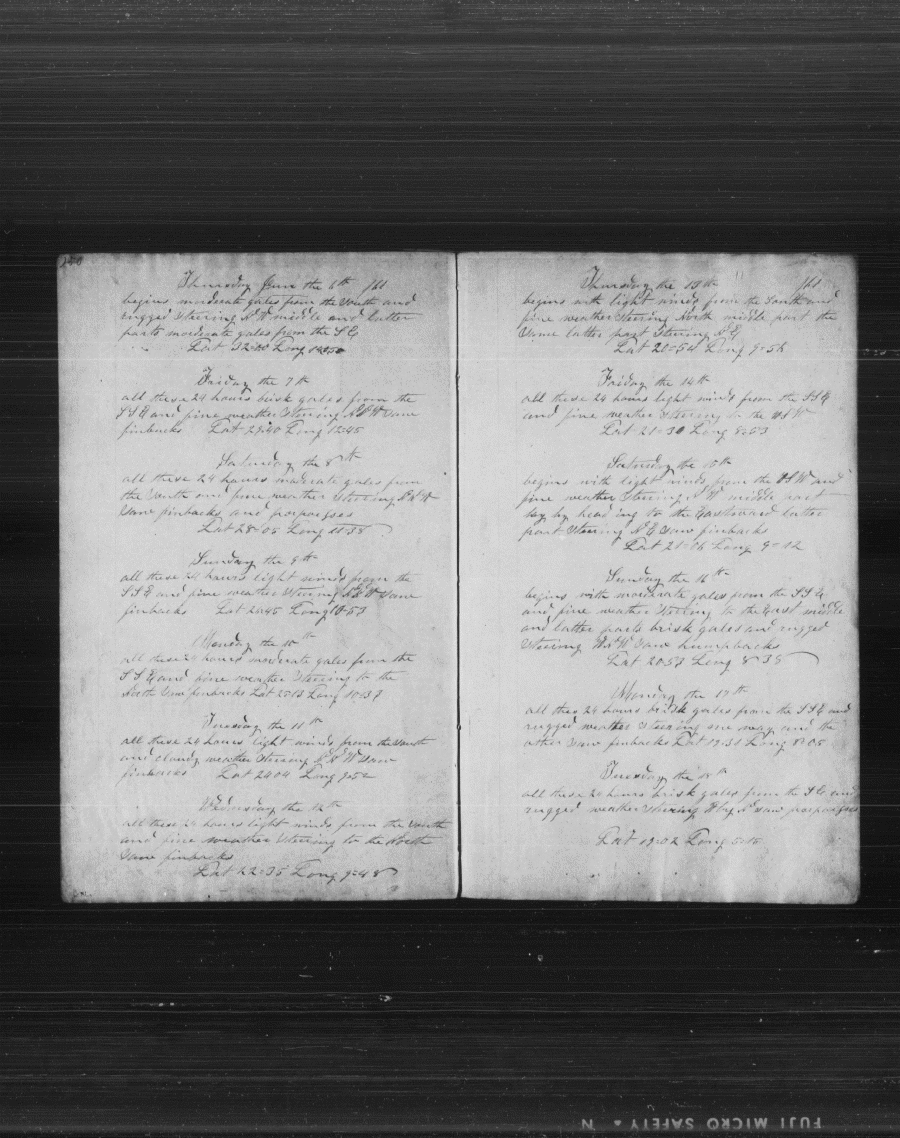 Thursday June the 6th /61
begins moderate gales from the South and
rugged Steering N W middle and latter
parts moderate gales from the S E
Lat 32=20 Long
Friday the 7th
all these 24 hours brisk gales from the
S S E and fine weather Steering N N W Saw
finbacks Lat 29=40 Long 12=45
Saturday the 8th
all these 24 hours moderate gales from
the South and fine weather Steering N N W
Saw finbacks and porpoises
Lat 28=05 Long 11=38
Sunday the 9th
all these 24 hours light winds from the
S S E and fine weather Steering N N W Saw
finbacks Lat Long 10=53
Monday the 10th
all these 24 hours moderate gales from the
S S E and fine weather Steering to the
North Saw finbacks Lat Long 10=37
Tuesday the 11th
all these 24 hours light winds from the South
and cloudy weather Steering N N W Saw
finbacks Lat 24=04 Long 9=52
Wednesday the 12th
all these 24 hours light winds from the South
and fine weather Steering to the North
Saw finbacks
Lat 22=35 Long 9=48
Thursday the 13th /61
begins with light winds from the South and
fine weather Steering North middle part the
Same latter part Steering N E
Lat 21=54 Long 9=56
Friday the 14th
all these 24 hours light winds from the S S E
and fine weather Steering to the
Lat 21=30 Long 8=53
Saturday the 15th
begins with light winds from the and
fine weather Steering N W middle part
lay by heading to the Eastward latter
part Steering N E Saw finbacks
Lat 21=16 Long 9=02
Sunday the 16th
begins with moderate gales from the S S E
and fine weather Steering to the East middle
and latter parts brisk gales and rugged
Steering Saw humpbacks
Lat 20=53 Long 8=38
Monday the 17th
all these 24 hours brisk gales from the S S E and
rugged weather Steering one way and the
other Saw finbacks Lat 19=31 Long 8=05
Tuesday the 18th
all these 24 hours brisk gales from the S E and
rugged weather Steering W by N Saw porpoises
Lat 19=02 Long
FUJI MICRO SAFETY N